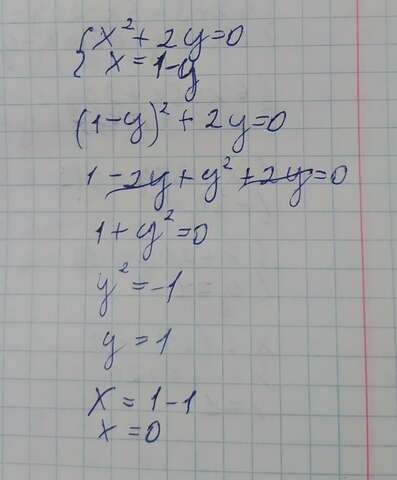 {x² + 2y = 0
{x = 1 - y
(1 - y)² + 2y = 0
1 - 2y + y² + 2y = 0
1 + y² = 0
y² = -1
y = 1
x = 1 - 1
x = 0